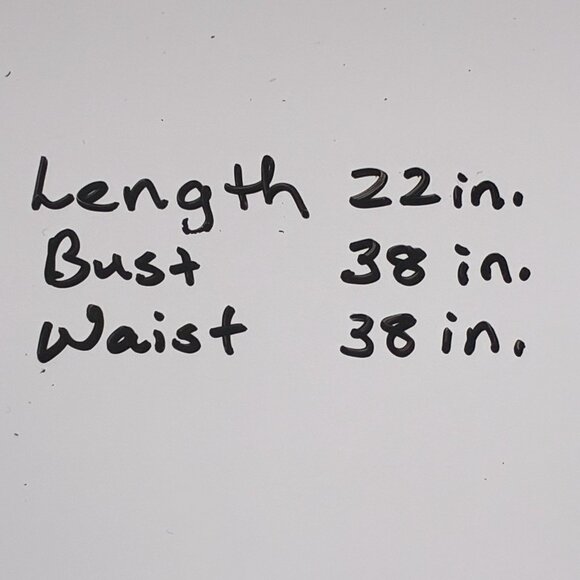 Length 22 in.
Bust 38 in.
Waist 38 in.